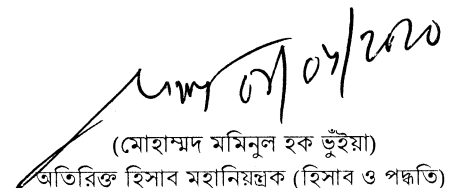 (মোহাম্মদ মমিনুল হক ভুঁইয়া)
অতিরিক্ত হিসাব মহানিয়ন্ত্রক (হিসাব ও পদ্ধতি)